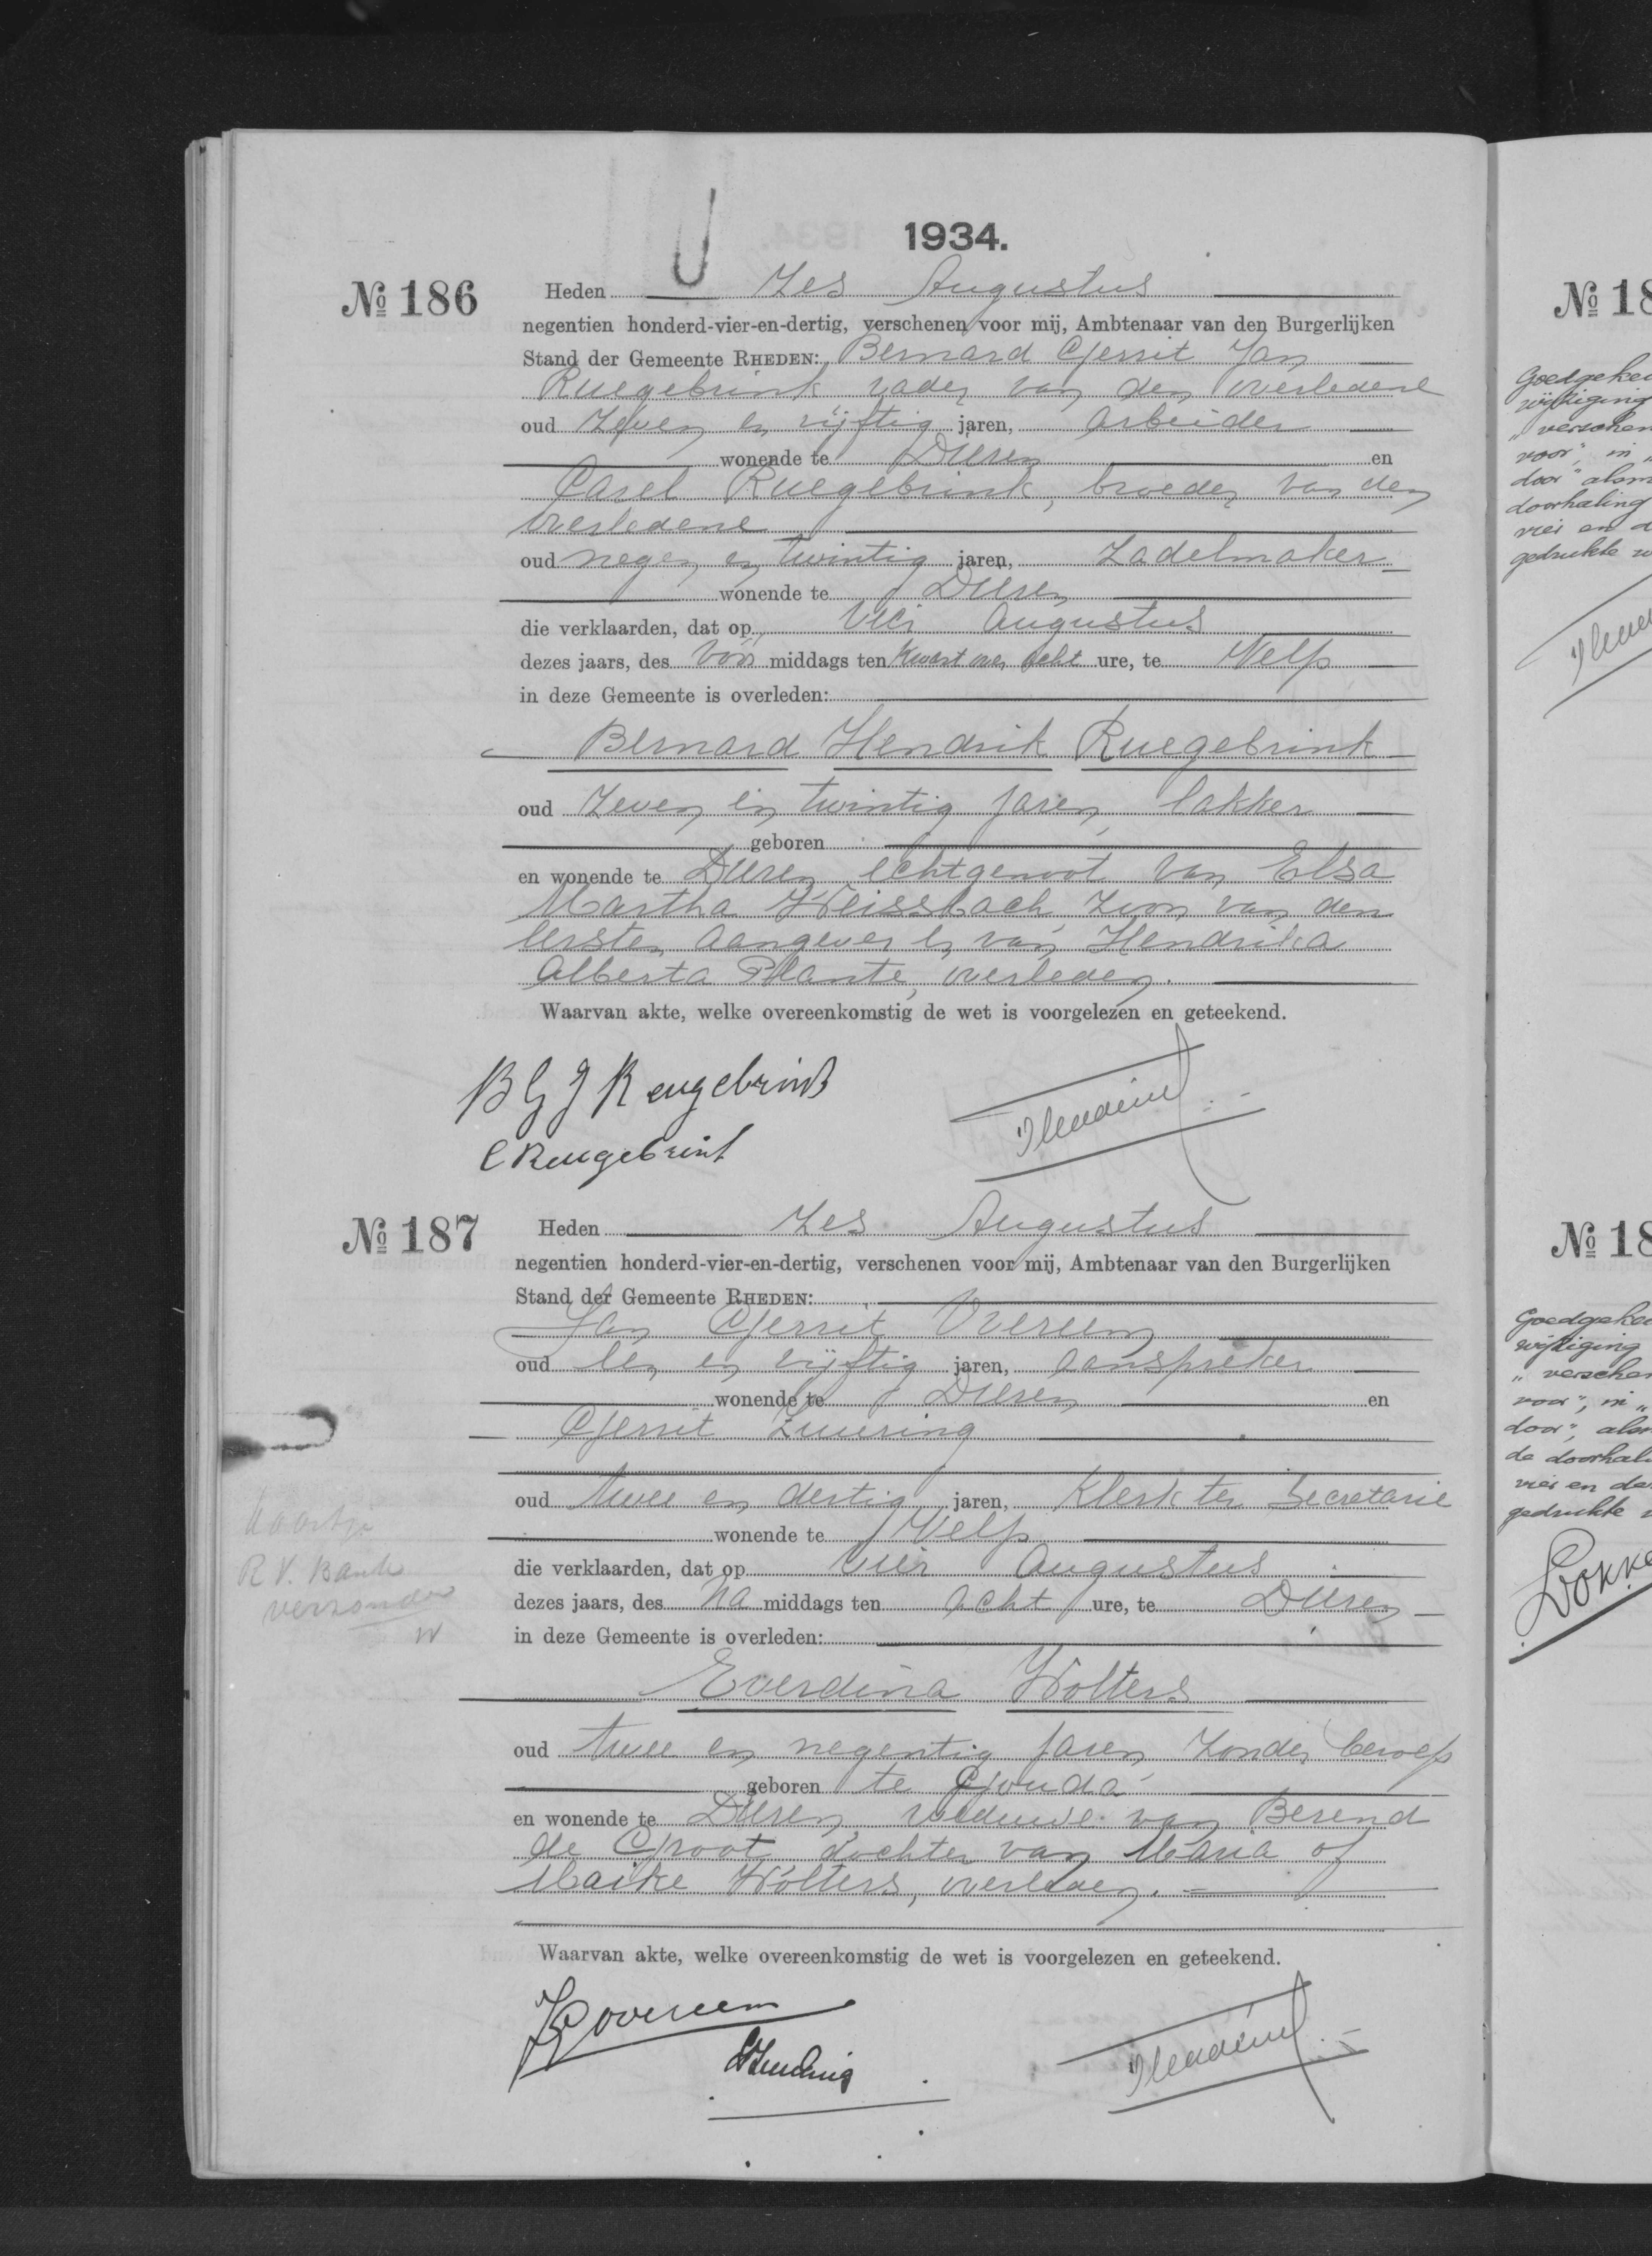 1934.
№ 186
Heden zes Augustus
negentien honderd-vier-en-dertig, verschenen voor mij, Ambtenaar van den Burgerlijken
Stand der Gemeente RHEDEN: Bernard Gerrit Jan
Ruegebrink vader van den overledene
oud zeven en vijftig jaren, arbeider
wonende te Dieren en
Carel Ruegebrink, broeder van den
overledene
oud negen en twintig jaren, zadelmaker
wonende te Dieren
die verklaarden, dat op vier Augustus
dezes jaars, des voor middags ten kwart over acht ure, te Velp
in deze Gemeente is overleden:
Bernard Hendrik Ruegebrink
oud zeven en twintig jaren, lakker
geboren
en wonende te Dieren echtgenoot van Elsa
Martha Weissbach zoon van den
eersten aangever en van Hendrika
Alberta Plante, overleden.
Waarvan akte, welke overeenkomstig de wet is voorgelezen en geteekend.
B G J Reugebrink
C Reugebrink
№ 187
Heden zes Augustus
negentien honderd-vier-en-dertig, verschenen voor mij, Ambtenaar van den Burgerlijken
Stand der Gemeente RHEDEN:
Jan Gerrit Overeem
oud een en vijftig jaren, aanspreker
wonende te Dieren en
Gerrit
oud twee en dertig jaren, klerk ter Secretarie
wonende te Velp
die verklaarden, dat op vier Augustus
dezes jaars, des na middags ten acht ure, te Dieren
in deze Gemeente is overleden:
Everdina Wolters
oud twee en negentig jaren zonder beroep
geboren te Gouda
en wonende te Dieren, weduwe van Berend
de Groot dochter van Maria of
Maike Wolters, overleden.
Waarvan akte, welke overeenkomstig de wet is voorgelezen en geteekend.
JG overeem
Kaartje
R.V. Bank
verzonden
№ 18
Goedgekeu
wijziging
"verschen
voor", in "
door" alsm
doorhaling
vier en d
gedrukte w
№ 18
Goedgekeu
wijziging
"verschen
voor", in "
door", alsm
de doorhali
vier en de
gedrukte w